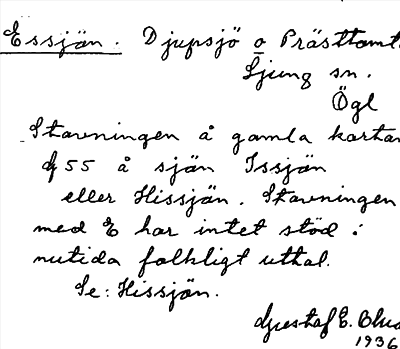 Essjön. Djupsjö o Prästtomt
Ljung sn.
Ögl
Stavningen å gamla kartan
55 å sjön Issjön
eller Hissjön. Stavningen
med E har intet stöd i
nutida folkligt uttal.
Se: Hissjön.
Gustaf E.
1936